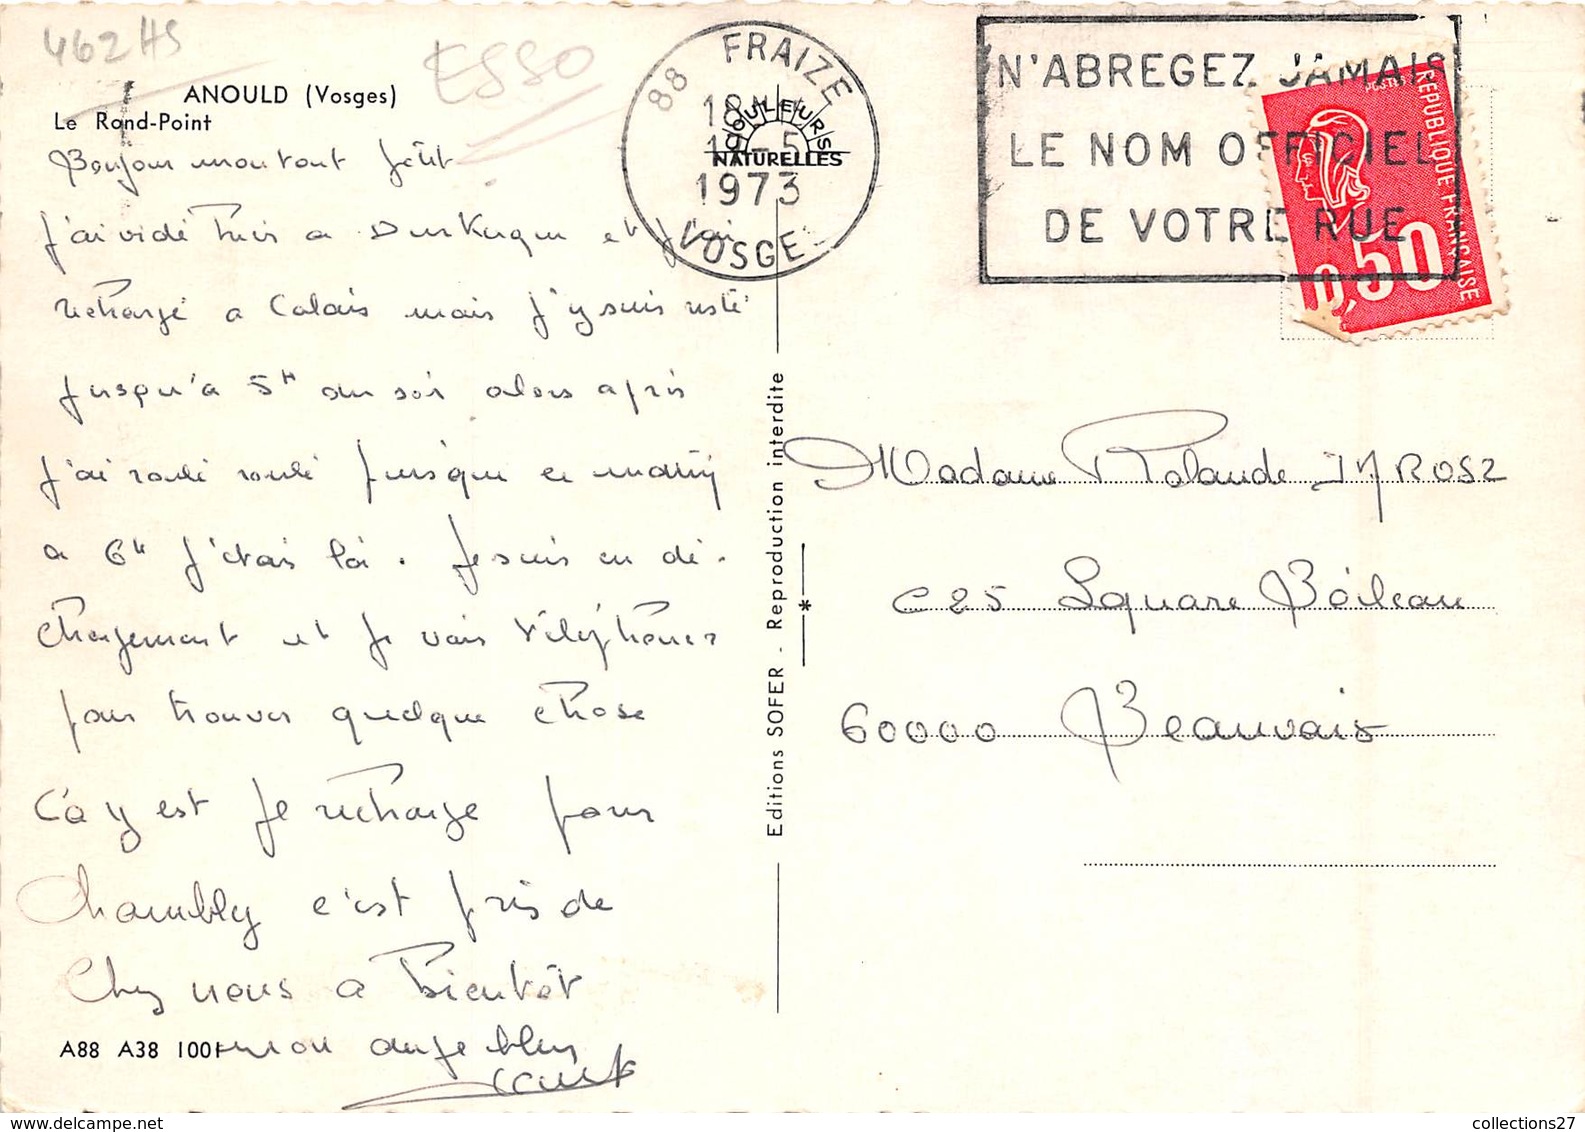 462 HS
ESSO
ANOULD (Vosges)
Le Rond-Point
Bonjour mon tout petit
J'ai vidé hier a Dunkerque et j'ai
rechargé a Calais mais j'y suis resté
jusqu'a 5H du soir alors après
j'ai roulé roulé jusque ce matin
a 6H j'étais là. Je suis en dé-
chargement et je vais téléphoner
pour trouver quelque chose
Ca y est je recharge pour
Chambly c'est près de
Chez nous a Bientôt
mon ange bleu
A88 A38 1001
88 FRAIZE
18H
1973
VOSGES
COULEURS
NATURELLES
N'ABREGEZ JAMAIS
LE NOM OFFICIEL
DE VOTRE RUE
POSTES
REPUBLIQUE FRANÇAISE
0,50
Editions SOFER - Reproduction interdite
Madame Rolande JAROSZ
C25 Square Boileau
60000 Beauvais
collections27